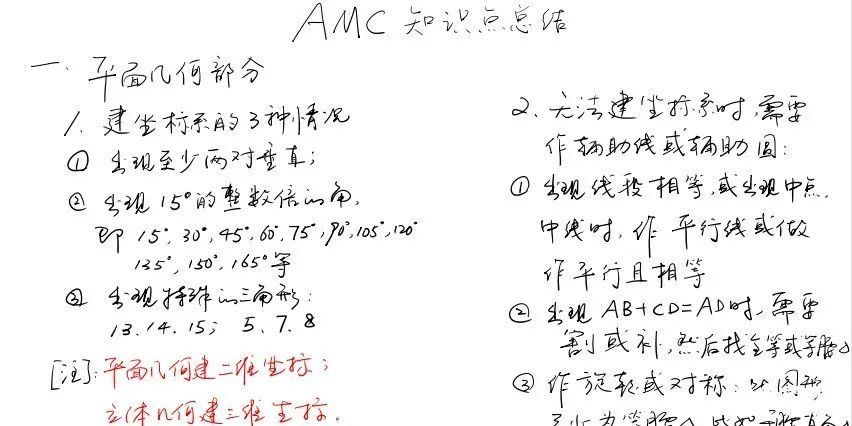 AMC 知识点总结
一、平面几何部分
1. 建坐标系的3种情况
① 出现至少两对垂直；
② 出现15°的整数倍的角，
即 15°, 30°, 45°, 60°, 75°, 90°, 105°, 120°
135°, 150°, 165° 等
③ 出现特殊的三角形：
13、14、15； 5、7、8
[注]：平面几何建二维坐标；
立体几何建三维坐标。
2. 无法建坐标系时，需要
作辅助线或辅助圆：
① 出现线段相等，或出现中点，
中线时，作平行线或做
作平行且相等
② 出现 AB+CD=AD时，需要
割或补，然后找全等或等腰△
③ 作旋转或对称：以图形